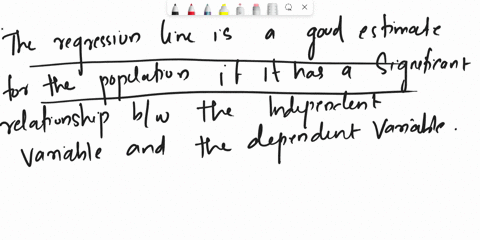 The regression line is a good estimate
for the population if it has a Significant
relationship b/w the Independent
Variable and the dependent Variable.